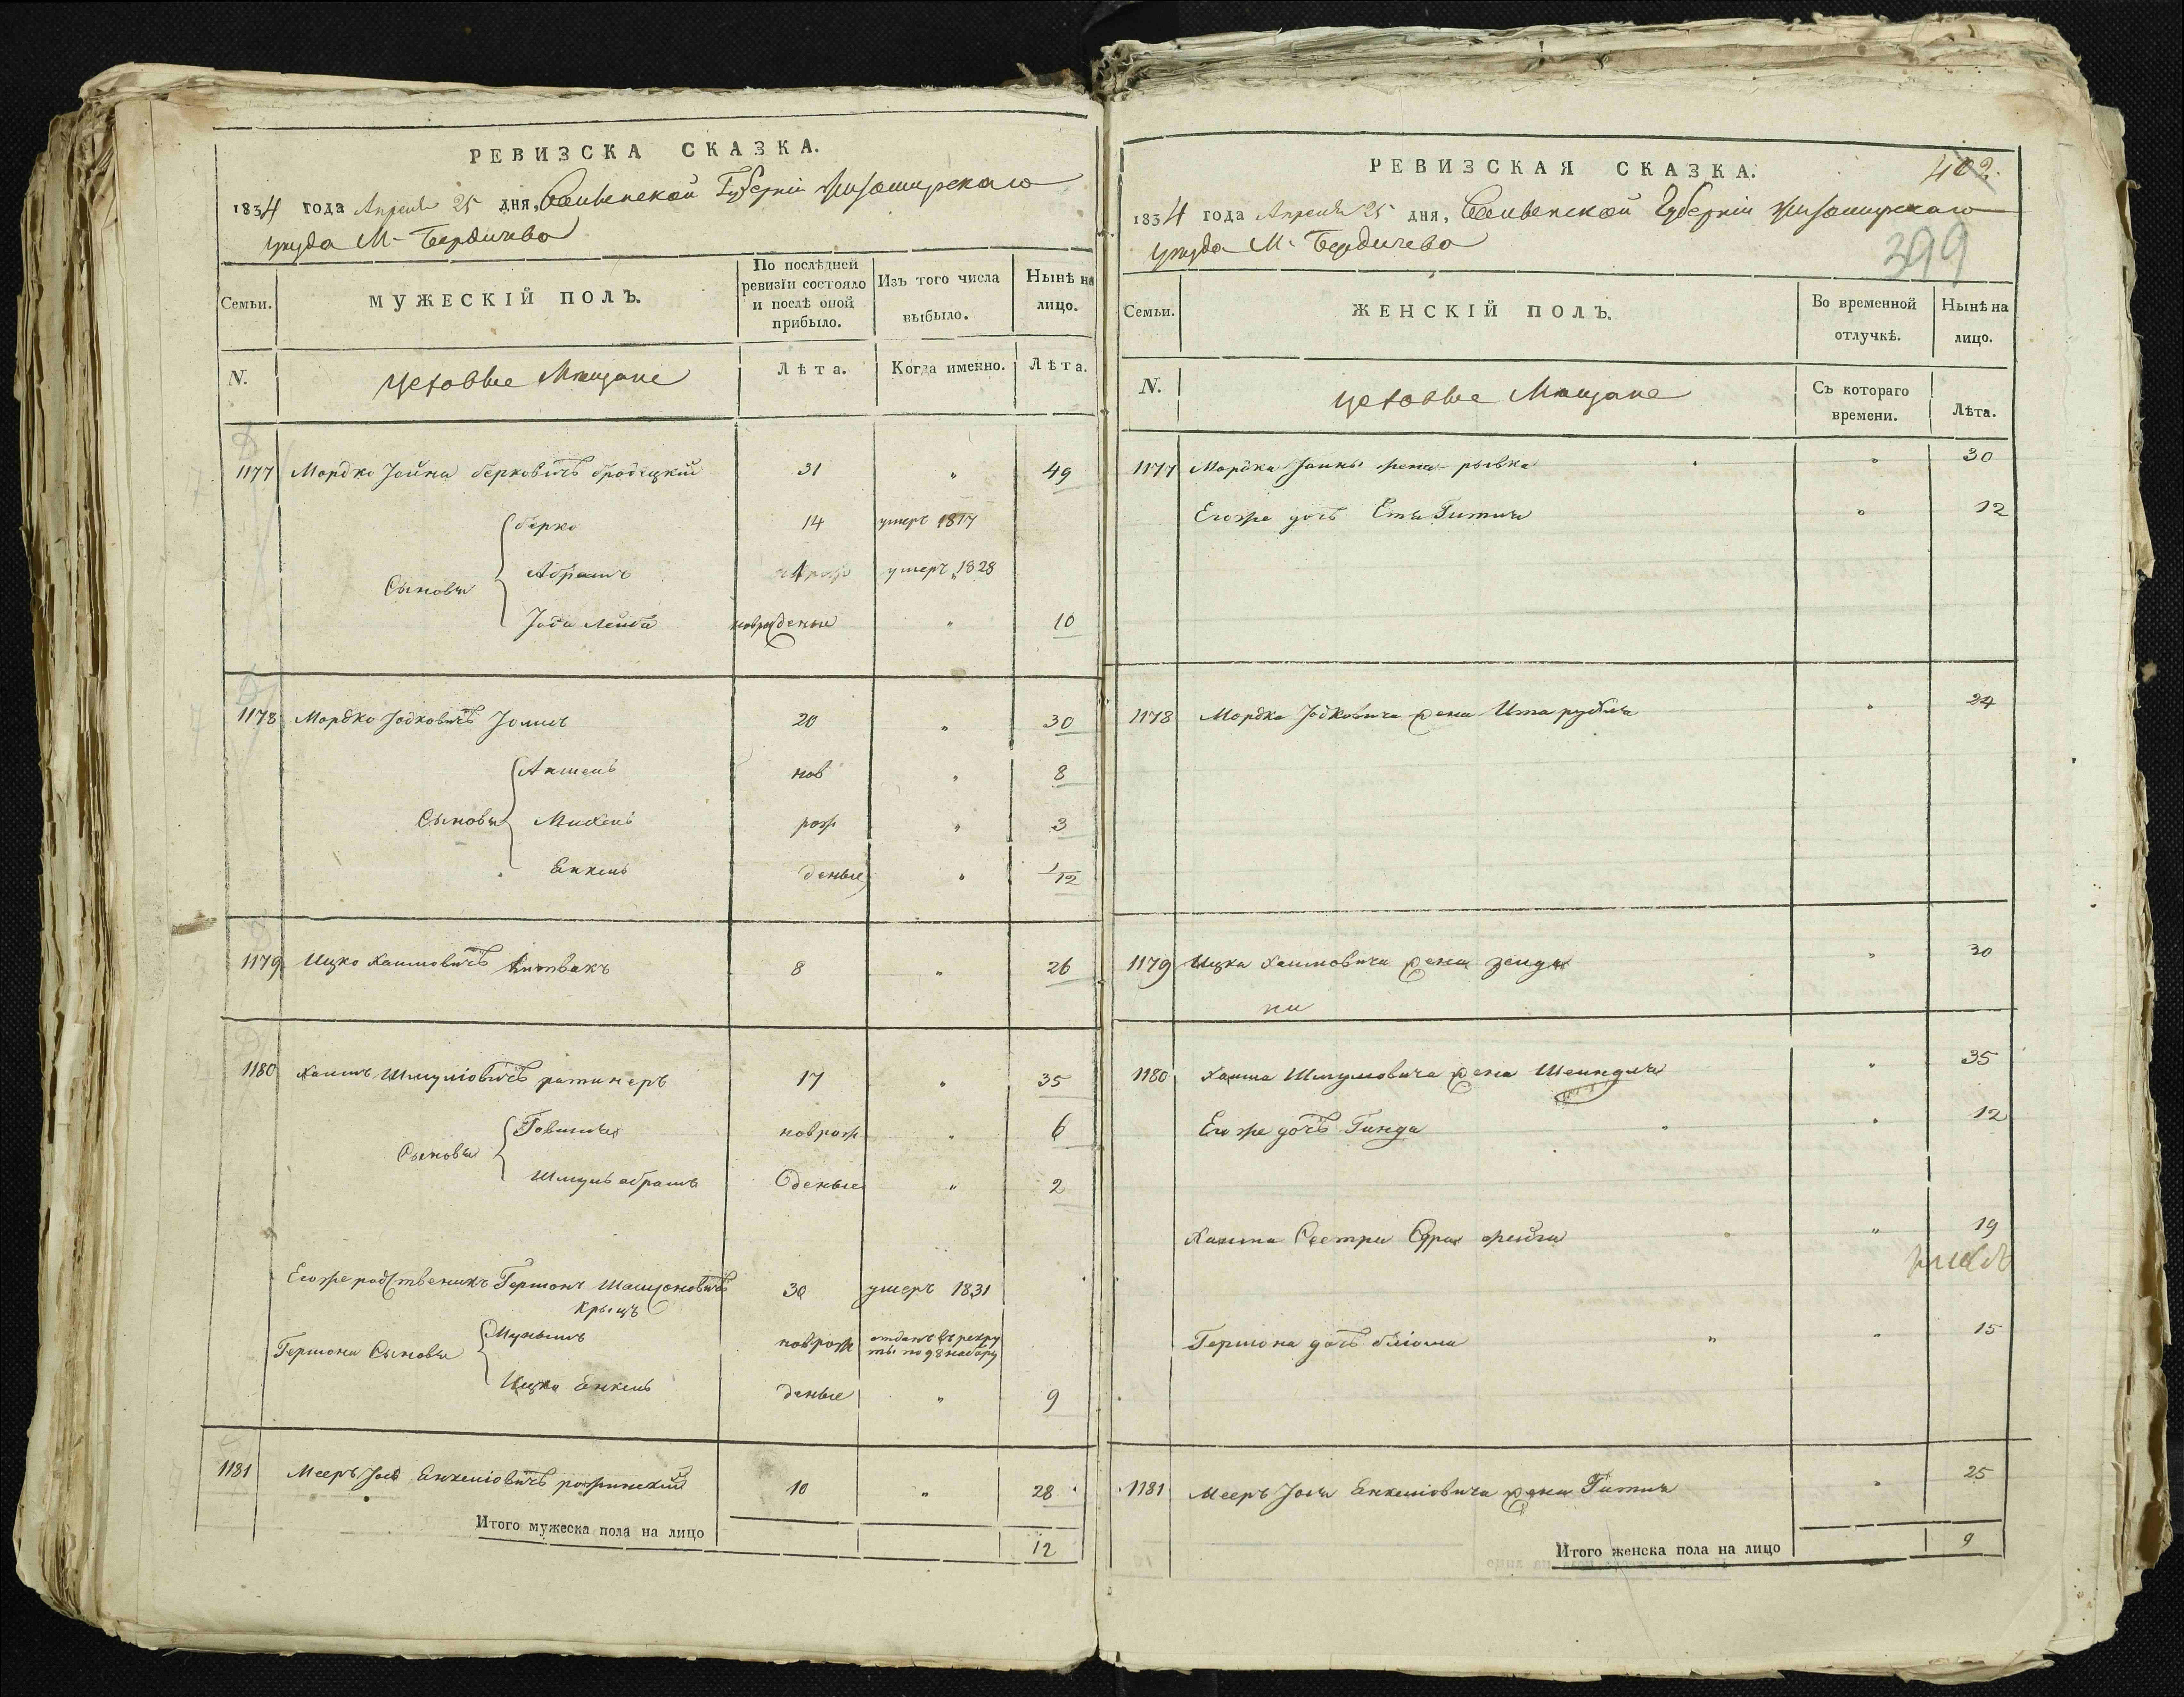 РЕВИЗСКА СКАЗКА.
1834 года Апреля 25 дня, Волынской Губерніи Житомирскаго
уезда М. Бердичева
Семьи.
МУЖЕСКІЙ ПОЛЪ.
По послѣдней ревизіи состояло и послѣ оной прибыло.
Изъ того числа выбыло.
Нынѣ на лицо.
N.
Цеховые Мещане
Лѣта.
Когда именно.
Лѣта.
1177 Мордко Іойна берковичъ бродецкий 31 " 49
берко 14 умеръ 1817
Сыновья
Абрамъ умеръ 1828
новрожденые " 10
1178 Мордко Іосковичъ 20 " 30
нов " 8
Сыновья Михель рож " 3
Енкель деные " 1/12
1179 Ицко Хаимовичъ Литвакъ 8 " 26
1180 Хаимъ Шмуліовичъ ратинеръ 17 " 35
новрож " 6
Сыновья
Шмуль абрамъ деные " 2
Егоже родственикъ Гершонъ 30 умеръ 1831
Гершона Сыновья
новрож отданъ въ рекру
ты по 98 набору
Ицко Енкель деные " 9
1181 Мееръ Іось Енкеліовичъ 10 " 28
Итого мужеска пола на лицо 12
РЕВИЗСКАЯ СКАЗКА.
402.
1834 года Апреля 25 дня, Волынской Губерніи Житомирскаго
уезда М. Бердичева
399
Семьи.
ЖЕНСКІЙ ПОЛЪ.
Во временной отлучкѣ.
Нынѣ на лицо.
N.
Цеховые Мещане
Съ котораго времени.
Лѣта.
1177 Мордка Іойны жена рывка " 30
Егоже дочь Гитля " 12
1178 Мордка Іосковича жена Ита " 24
1179 Ицка Хаимовича жена " 30
1180 Хаима Шмуловича жена Шеиндля " 35
Егоже дочь Гинда " 12
Хаима Сестра фейга " 19
Гершона дочь " 15
1181 Мееръ Енкеліовича жена Гитля " 25
Итого женска пола на лицо 9